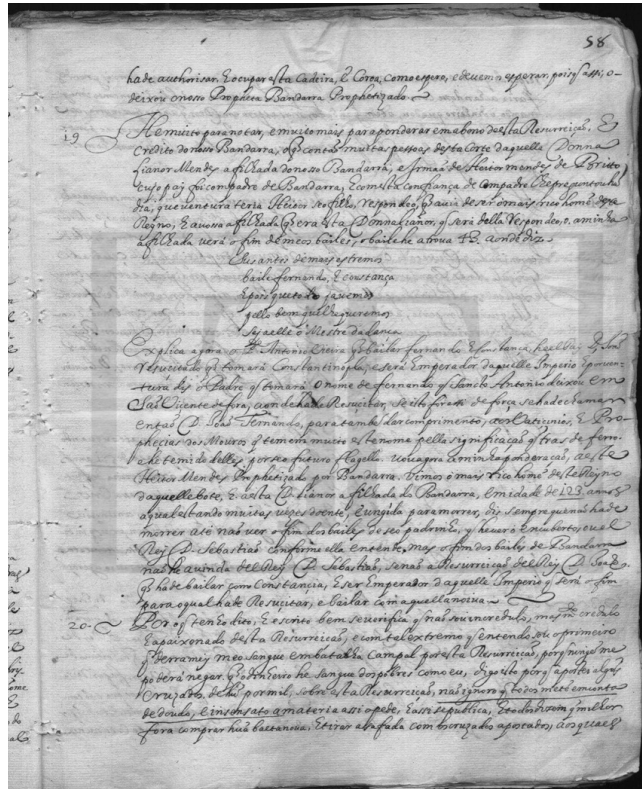 58
ha de authorisar, E occupar esta Cadeira, e Coroa, como espero, e devem esperar, pois assi, o
deixou o nosso Propheta Bandarra Prophetizado.
19 He muito para notar, e muito mais para ponderar em abono desta Resurreição, E
Credito do nosso Bandarra, o q contão muitas pessoas desta Corte daquella Donna
Lianor Mendes afilhada do nosso Bandarra, e Irmaã de Heitor mendes de Britto
Cujo paj foi compadre de Bandarra, E com esta confiança de Compadre lhe preguntou hũ
dia, que ventura teria Heitor seo filho, respondeo, q havia de ser o mais rico homẽ deste
Reyno, E a vossa afilhada q era esta Donna Lianor, q será della Respondeo, a minha
afilhada verá o fim de meos bailes, o baile he a trova 43. aonde diz
Mas antes de mais estremos
baile fernando, E constança
E pois que tudo ja vemos
pello bem que lhe queremos
Seja elle o Mestre da dança
Explica agora o Pe Antonio Vieira q bailar fernando E constança, he ElRey D. João
resuscitado q tomará Constantinopla, e será Emperador daquelle Imperio E porven-
tura diz o Padre q tomará o nome de fernando q Sancto Antonio deixou em
São Vicente de fora, aonde ha de Resucitar, se isto for assi de força se ha de chamar
então D. João Fernando, para tambẽ dar comprimento, aos Vaticinios, E Pro-
phecias dos Mouros q temem muito este nome pella significação q tras de ferro
e he temido delles, por seo futuro flagello. vou agora a minha ponderação, a este
Heitor Mendes Prophetizado por Bandarra. Vimos o mais rico homẽ deste Reyno
daquelle bote, E a esta D. Lianor afilhada do Bandarra, em idade de 123 annos
a qual estando muitas vezes doente, E ungida para morrer, dis sempre que não ha de
morrer até não ver o fim dos bailes de seo padrinho, q he ver o Encuberto, e a el
Rey D. Sebastião conforme ella entende, mas o fim dos bailes de Bandarra
não he a vinda del Rey D. Sebastião, senão a Resurreição del Rey D. João
q ha de bailar com Constancia, E ser Emperador daquelle Imperio q será o fim
para o qual ha de Resucitar, e bailar com aquella noiva.
20 Por o q tenho dito, E escrito bem se verifica q não sou incredulo, mas mto credulo
E apaixonado desta Resurreição, e com tal extremo q entendo sou o primeiro
q derramey meo sangue em batalha Campal por esta Resurreição, porq ninguẽ me
poderá negar, q o dinheiro he sangue dos pobres como eu, digo isto porq apostei algũs
Cruzados de hũ por mil, sobre esta Resurreição, não ignoro q todos me tẽ em conta
de doudo, E insensato a materia assi o pede, E assi se publica, E todos dizem q milhor
fora comprar hũa bactanoia, E tirar a safada com os cruzados apostados, aos quaes